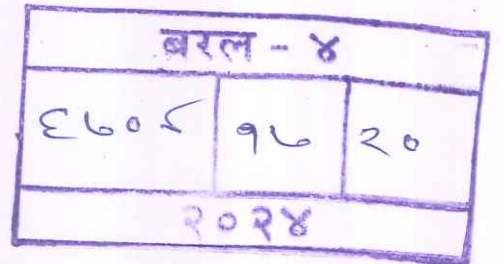 बरल - ४
६७०८ १७ २०
२०२४